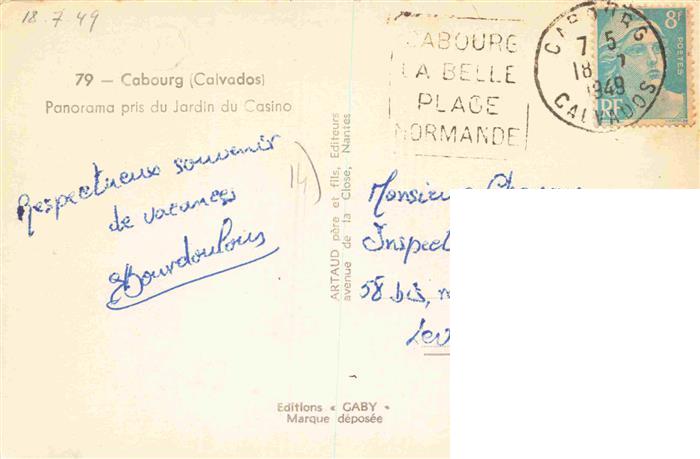 18.7.49
79 — Cabourg (Calvados)
Panorama pris du Jardin du Casino
Respectueux souvenir
de vacances
14)
ARTAUD père et fils, Editeurs
avenue de la Close, Nantes
Editions « GABY »
Marque déposée
CABOURG
LA BELLE
PLAGE
NORMANDE
CABOURG
7 5
18 - 7
1949
CALVADOS
8F
POSTES
RF
Monsieur
Inspect
58 bis,
Lev